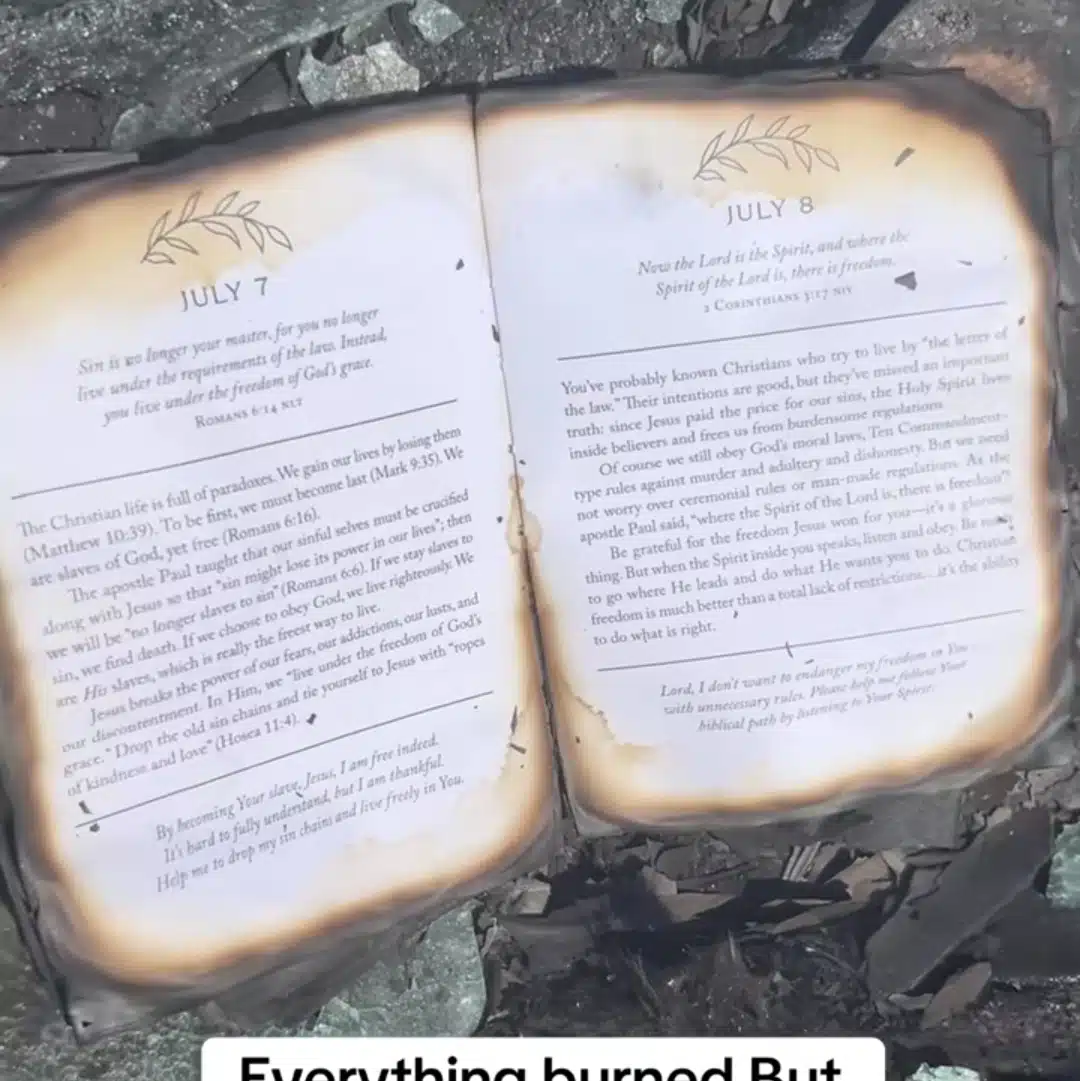 JULY 7
Sin is no longer your master, for you no longer
live under the requirements of the law. Instead,
you live under the freedom of God's grace.
ROMANS 6:14 NLT
The Christian life is full of paradoxes. We gain our lives by losing them
(Matthew 10:39). To be first, we must become last (Mark 9:35). We
are slaves of God, yet free (Romans 6:16).
The apostle Paul taught that our sinful selves must be crucified
along with Jesus so that "sin might lose its power in our lives"; then
we will be "no longer slaves to sin" (Romans 6:6). If we stay slaves to
sin, we find death. If we choose to obey God, we live righteously. We
are His slaves, which is really the freest way to live.
Jesus breaks the power of our fears, our addictions, our lusts, and
our discontentment. In Him, we "live under the freedom of God's
grace." Drop the old sin chains and tie yourself to Jesus with "ropes
of kindness and love" (Hosea 11:4).
By becoming Your slave, Jesus, I am free indeed.
It's hard to fully understand, but I am thankful.
Help me to drop my sin chains and live freely in You.
JULY 8
Now the Lord is the Spirit, and where the
Spirit of the Lord is, there is freedom.
2 CORINTHIANS 3:17 NIV
You've probably known Christians who try to live by "the letter of
the law." Their intentions are good, but they've missed an important
truth: since Jesus paid the price for our sins, the Holy Spirit lives
inside believers and frees us from burdensome regulations.
Of course we still obey God's moral laws, Ten Commandment–
type rules against murder and adultery and dishonesty. But we need
not worry over ceremonial rules or man-made regulations. As the
apostle Paul said, "where the Spirit of the Lord is, there is freedom"!
Be grateful for the freedom Jesus won for you—it's a glorious
thing. But when the Spirit inside you speaks, listen and obey. Be ready
to go where He leads and do what He wants you to do. Christian
freedom is much better than a total lack of restrictions. . .it's the ability
to do what is right.
Lord, I don't want to endanger my freedom in You
with unnecessary rules. Please help me follow Your
biblical path by listening to Your Spirit.
Everything burned But